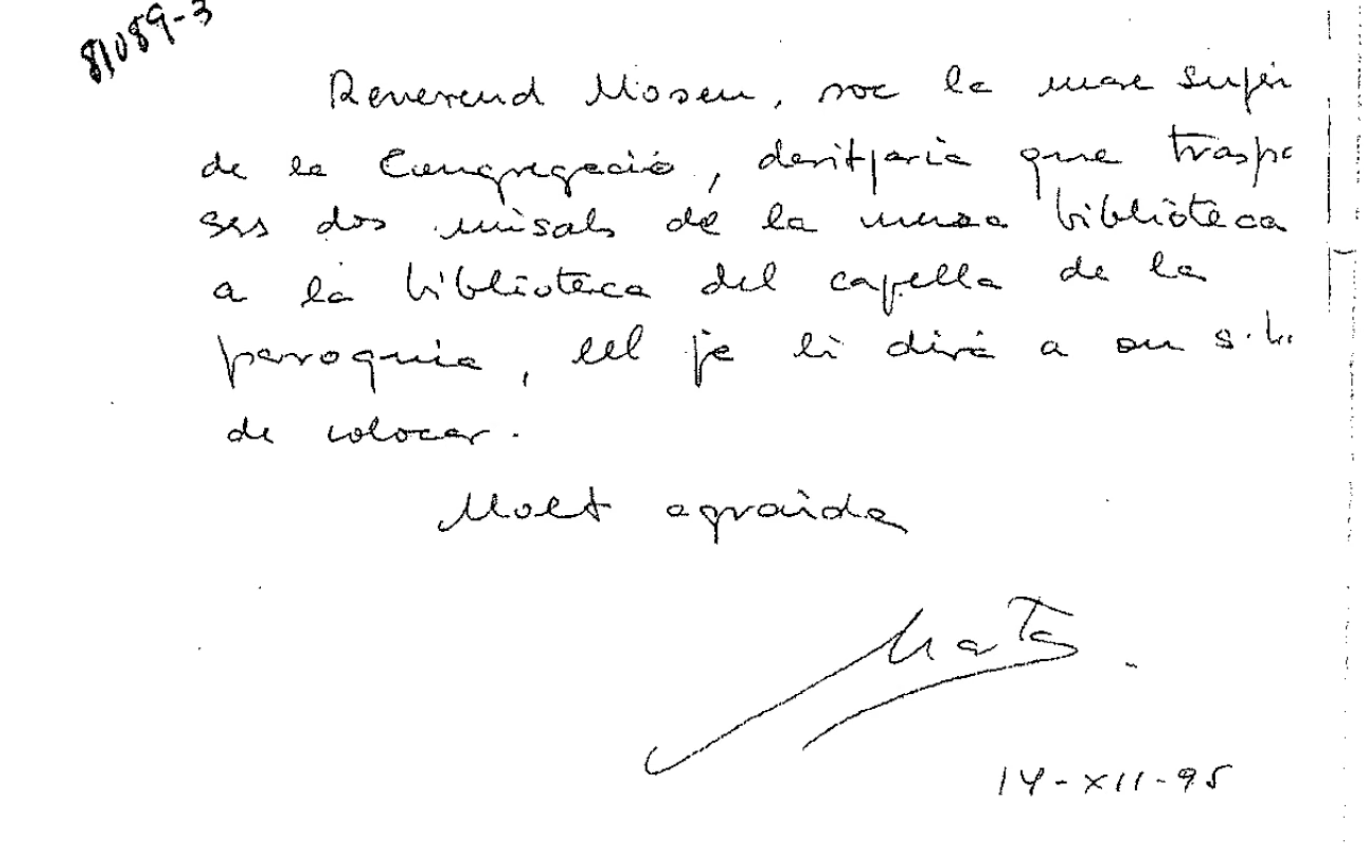 81089-3
Reverend Mosen, soc la mare super
de la Congregació, desitjaria que traspa
ses dos misals de la meva biblioteca
a la biblioteca del capella de la
paroquia, ell ja li dirà a on s.h.
de colocar.
Molt agraïda
Mata
14-XII-95